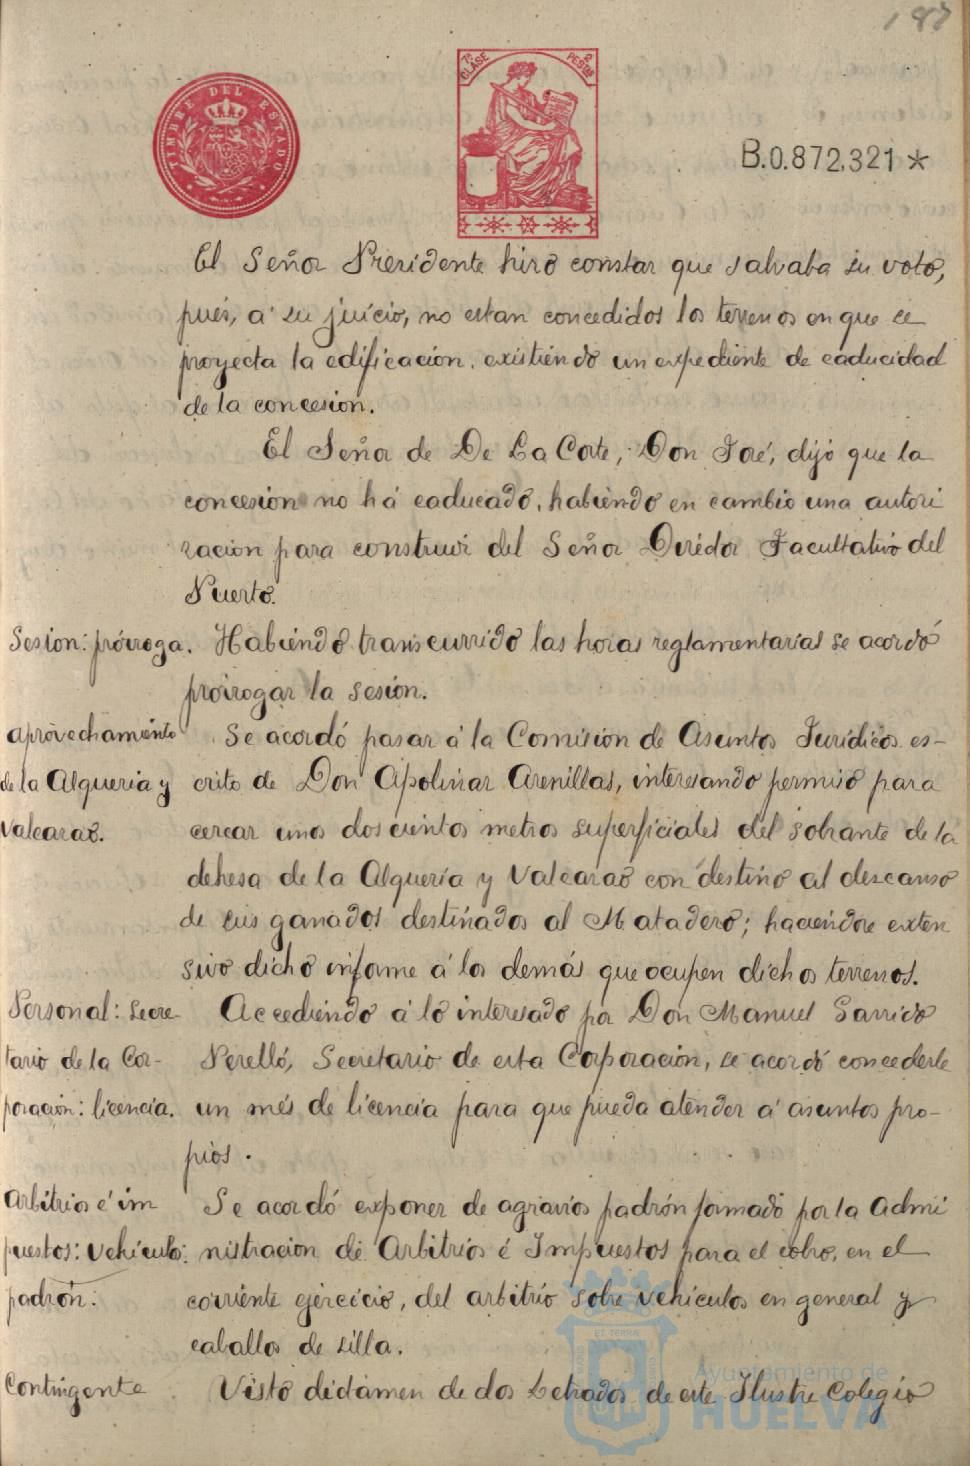 187
TIMBRE DEL ESTADO
7ª CLASE
2 PESTAS
B.0.872,321*
El Señor Presidente hizo constar que salvaba su voto,
pues, á su juicio, no estan concedidos los terrenos en que se
proyecta la edificacion, existiendo un expediente de caducidad
de la concesion.
El Señor de De La Corte, Don José, dijó que la
concesion no há caducado, habiendo en cambio una autori
zacion para construir del Señor Diréctor Facultativo del
Puerto.
Sesion: prórroga. Habiendo transcurrido las horas reglamentarias se acordó
prorrogar la sesion.
Aprovechamiento Se acordó pasar á la Comision de Asuntos Jurídicos es-
de la Alqueria y crito de Don Apolinar Arenillas, interesando permiso para
Valcarao. cercar unos doscientos metros superficiales del sobrante de la
dehesa de la Alquería y Valcarao con destino al descanso
de sus ganados destinados al Matadero; haciendose exten
sivo dicho informe á los demás que ocupen dichos terrenos.
Personal: Secre- Accediendo á lo interesado por Don Manuel Garrido
tario de la Cor- Perelló, Secretario de esta Corporacion, se acordó concederle
poracion: licencia. un més de licencia para que pueda atender á asuntos pro-
pios.
Arbitrios é im Se acordó exponer de agravios padrón formado por la Admi
puestos: vehiculos: nistracion de Arbitrios é Impuestos para el cobro, en el
padrón. corriente ejercicio, del arbitrio sobre vehículos en general y
caballos de silla.
Contingente Visto dictámen de dos Letrados de este Ilustre Colegio
Ayuntamiento de
HUELVA